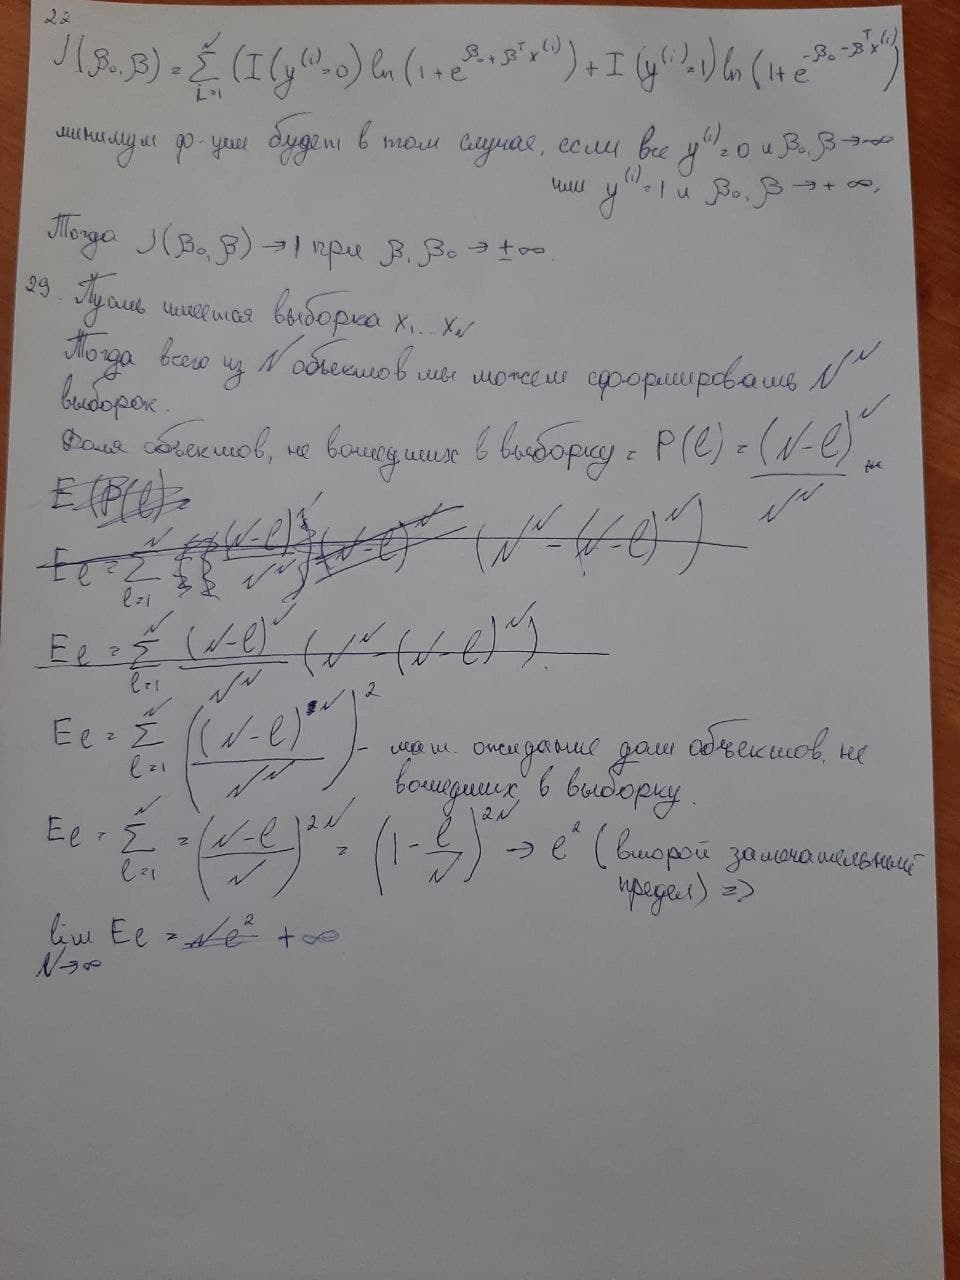 22
J(β₀, β) = Σ_{i=1}^{N} (I(y⁽ⁱ⁾=0) ln(1+e^{β₀+βᵀx⁽ⁱ⁾}) + I(y⁽ⁱ⁾=1) ln(1+e^{-β₀-βᵀx⁽ⁱ⁾})
минимум ф-ции будет в том случае, если все y⁽ⁱ⁾=0 и β₀, β → -∞
или y⁽ⁱ⁾=1 и β₀, β → +∞.
Тогда J(β₀, β) → 1 при β, β₀ → ±∞.
29. Пусть имеется выборка x₁...x_N
Тогда всего из N объектов мы можем сформировать N^N
выборок.
Доля объектов, не вошедших в выборку = P(ℓ) = (N-ℓ)^N / N^N
E(P(ℓ)) =
Eℓ = Σ_{ℓ=1}^{N} (N-ℓ)^N / N^N (N-ℓ)^N (N^N - (N-ℓ)^N)
Eℓ = Σ_{ℓ=1}^{N} (N-ℓ)^N / N^N (N^N - (N-ℓ)^N).
Eℓ = Σ_{ℓ=1}^{N} ((N-ℓ)^N / N^N)² - мат. ожидание доли объектов, не
вошедших в выборку.
Eℓ = Σ_{ℓ=1}^{N} = ((N-ℓ)/N)^{2N} = (1 - ℓ/N)^{2N} → e² (второй замечательный
предел) =>
lim_{N→∞} Eℓ = Ne² + ∞